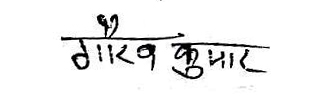 गौरव कुमार